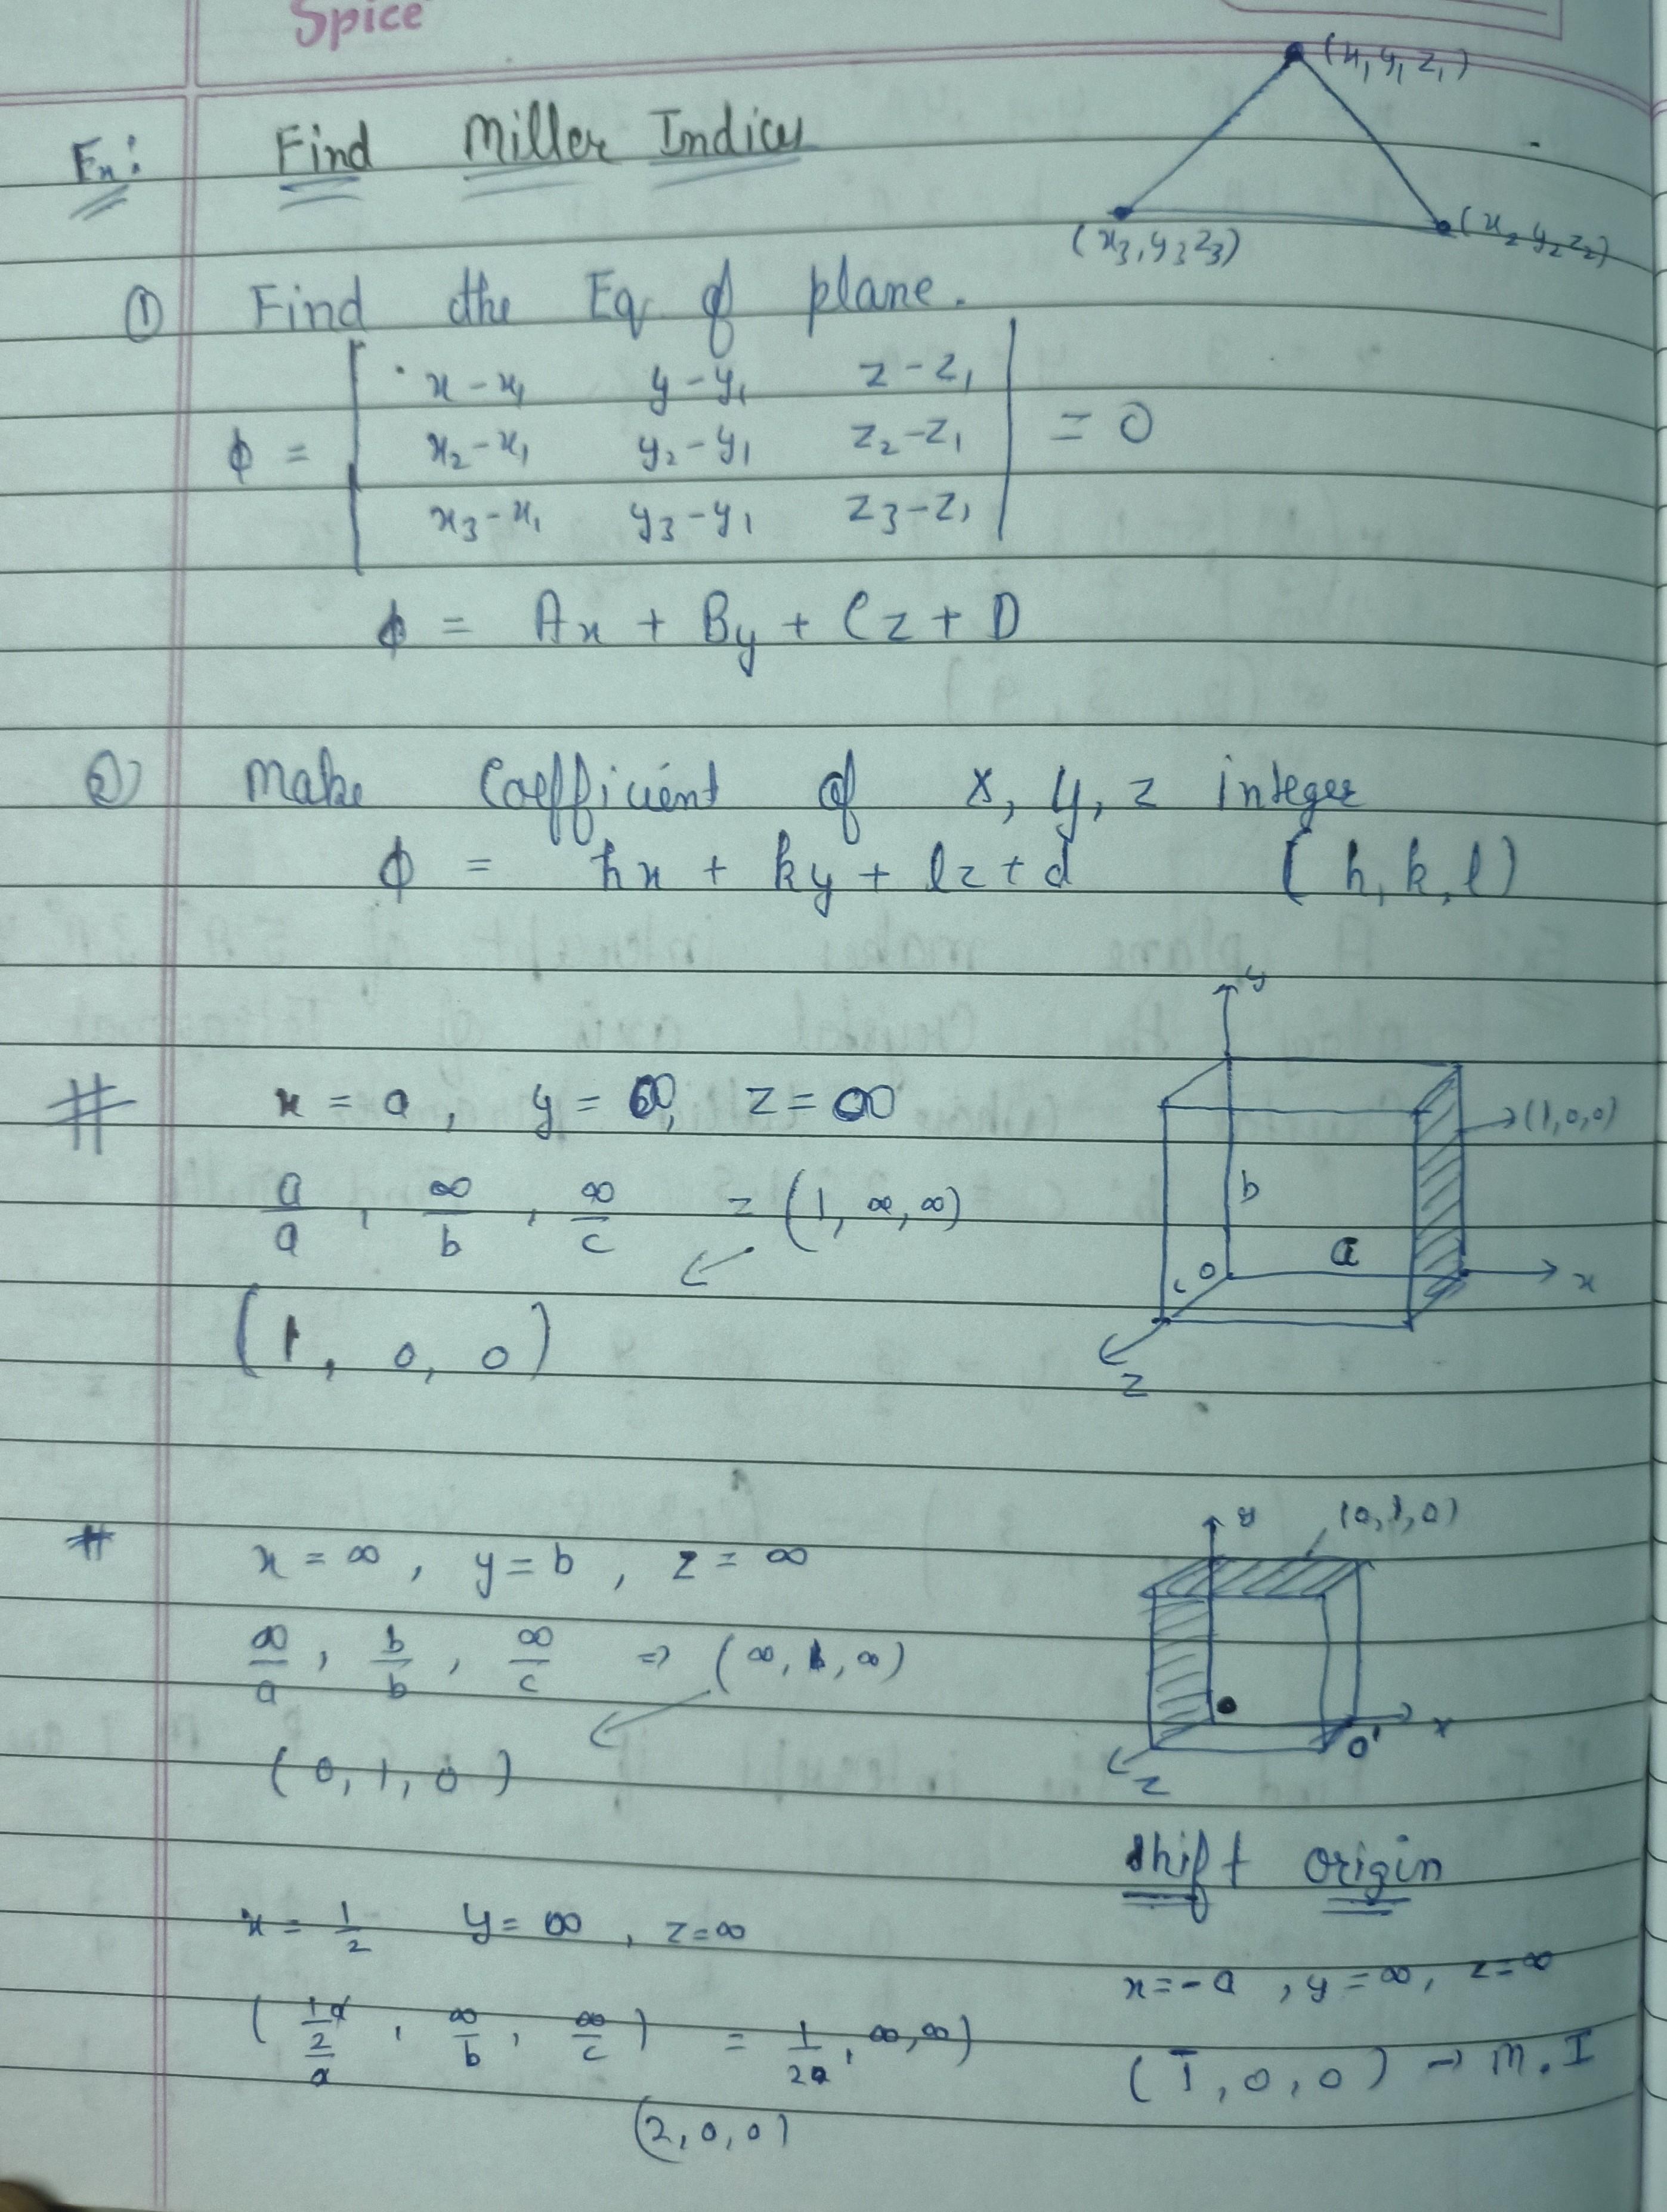 Spice
(x₁ y₁ z₁)
Ex: Find Miller Indices
(x₃, y₃ z₃) (x₂ y₂ z₂)
① Find the Eq of plane.
ϕ = | x-x₁ y-y₁ z-z₁ |
| x₂-x₁ y₂-y₁ z₂-z₁ | = 0
| x₃-x₁ y₃-y₁ z₃-z₁ |
ϕ = Ax + By + Cz + D
② Make Coefficient of x, y, z integer
ϕ = hx + ky + lz + d (h, k, l)
# x = a, y = ∞, z = ∞
a/a, ∞/b, ∞/c = (1, ∞, ∞)
(1, 0, 0)
y
→ (1,0,0)
b
a
c o
x
z
# x = ∞, y = b, z = ∞
∞/a, b/b, ∞/c ⇒ (∞, 1, ∞)
(0, 1, 0)
y (0,1,0)
x
o'
z
Shift origin
x = -a, y = ∞, z = ∞
(1̅, 0, 0) → M.I
x = 1/2 y = ∞, z = ∞
(1/2 a/a, ∞/b, ∞/c) = 1/2a, ∞, ∞)
(2, 0, 0)